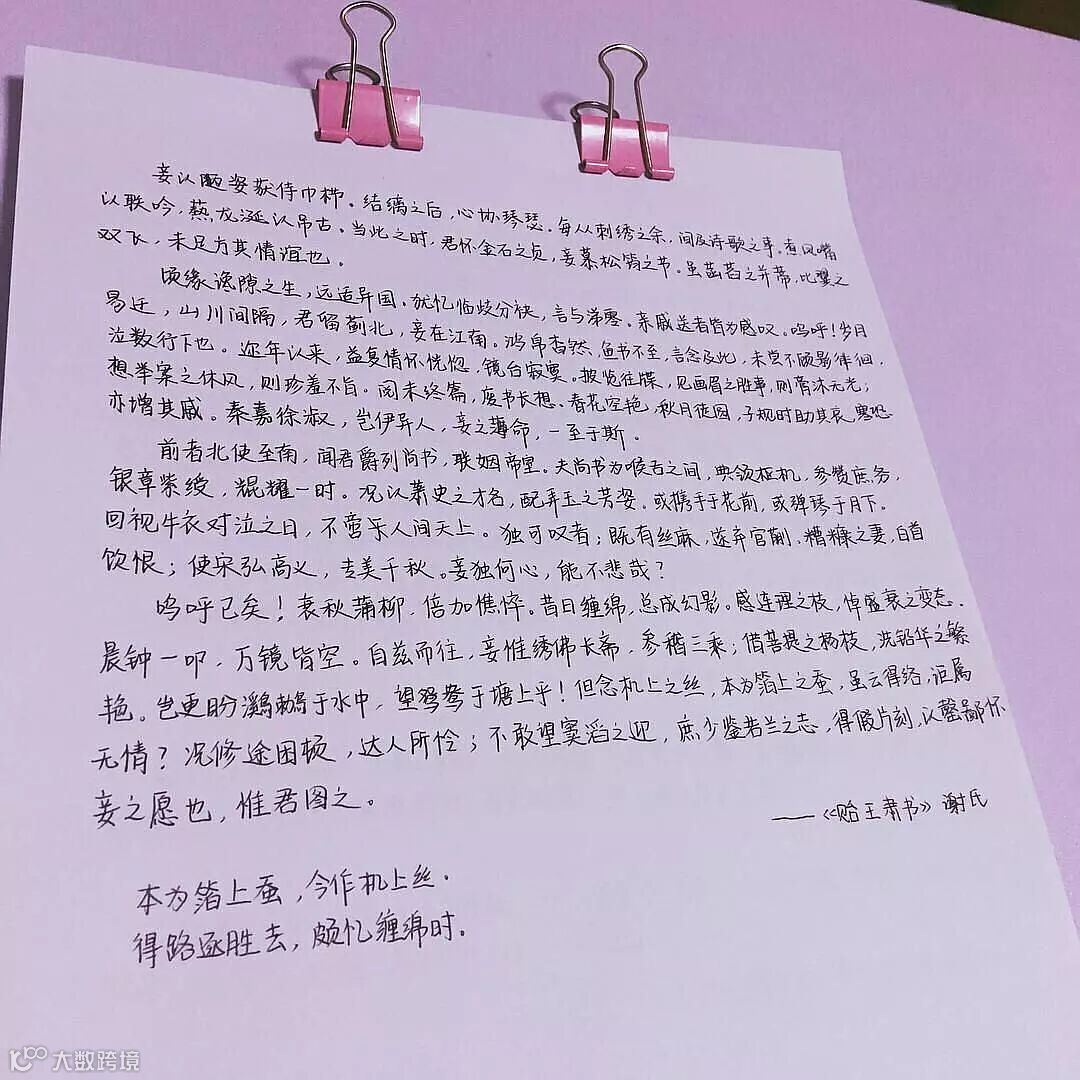 妾以陋姿获侍巾栉。结缡之后，心协琴瑟。每从刺绣之余，间及诗歌之事。煮凤嘴
以联吟，爇龙涎以吊古。当此之时，君怀金石之贞，妾慕松筠之节。虽菡萏之并蒂，比翼之
双飞，未足方其情谊也。
顷缘谗隙之生，远适异国。犹忆临歧分袂，言与涕零。亲戚送者皆为感叹。呜呼！岁月
易迁，山川间隔，君留蓟北，妾在江南。鸿帛杳然，鱼书不至，言念及此，未尝不顾影徘徊，
泣数行下也。迩年以来，益复情怀恍惚，镜台寂寞。披览往牒，见画眉之胜事，则膏沐无光；
想举案之休风，则珍羞不旨。阅未终篇，废书长想。春花空艳，秋月徒圆，子规时助其哀，寒蛩
亦增其戚。秦嘉徐淑，岂伊异人，妾之薄命，一至于斯。
前者北使至南，闻君爵列尚书，联姻帝室。夫尚书为喉舌之间，典领枢机，参赞庶务，
银章紫绶，焜耀一时。况以萧史之才名，配弄玉之芳姿。或携手于花前，或弹琴于月下。
回视牛衣对泣之日，不啻乐人间天上。独可叹者；既有丝麻，遂弃官蒯，糟糠之妻，白首
饮恨；使宋弘高义，专美千秋。妾独何心，能不悲哉？
呜呼已矣！衰秋蒲柳，倍加憔悴。昔日缠绵，总成幻影。感连理之枝，悼盛衰之变态。
晨钟一叩，万镜皆空。自兹而往，妾惟绣佛长斋，参稽三乘；借菩提之杨枝，洗铅华之繁
艳。岂更盼鸂鶒于水中，望鸳鸯于塘上乎！但念机上之丝，本为箔上之蚕，虽云得络，讵属
无情？况修途困顿，达人所怜；不敢望窦滔之迎，庶少鉴若兰之志，得假片刻，以罄鄙怀
妾之愿也，惟君图之。
——《贻王肃书》谢氏
本为箔上蚕，今作机上丝．
得路逐胜去，颇忆缠绵时．
大数跨境